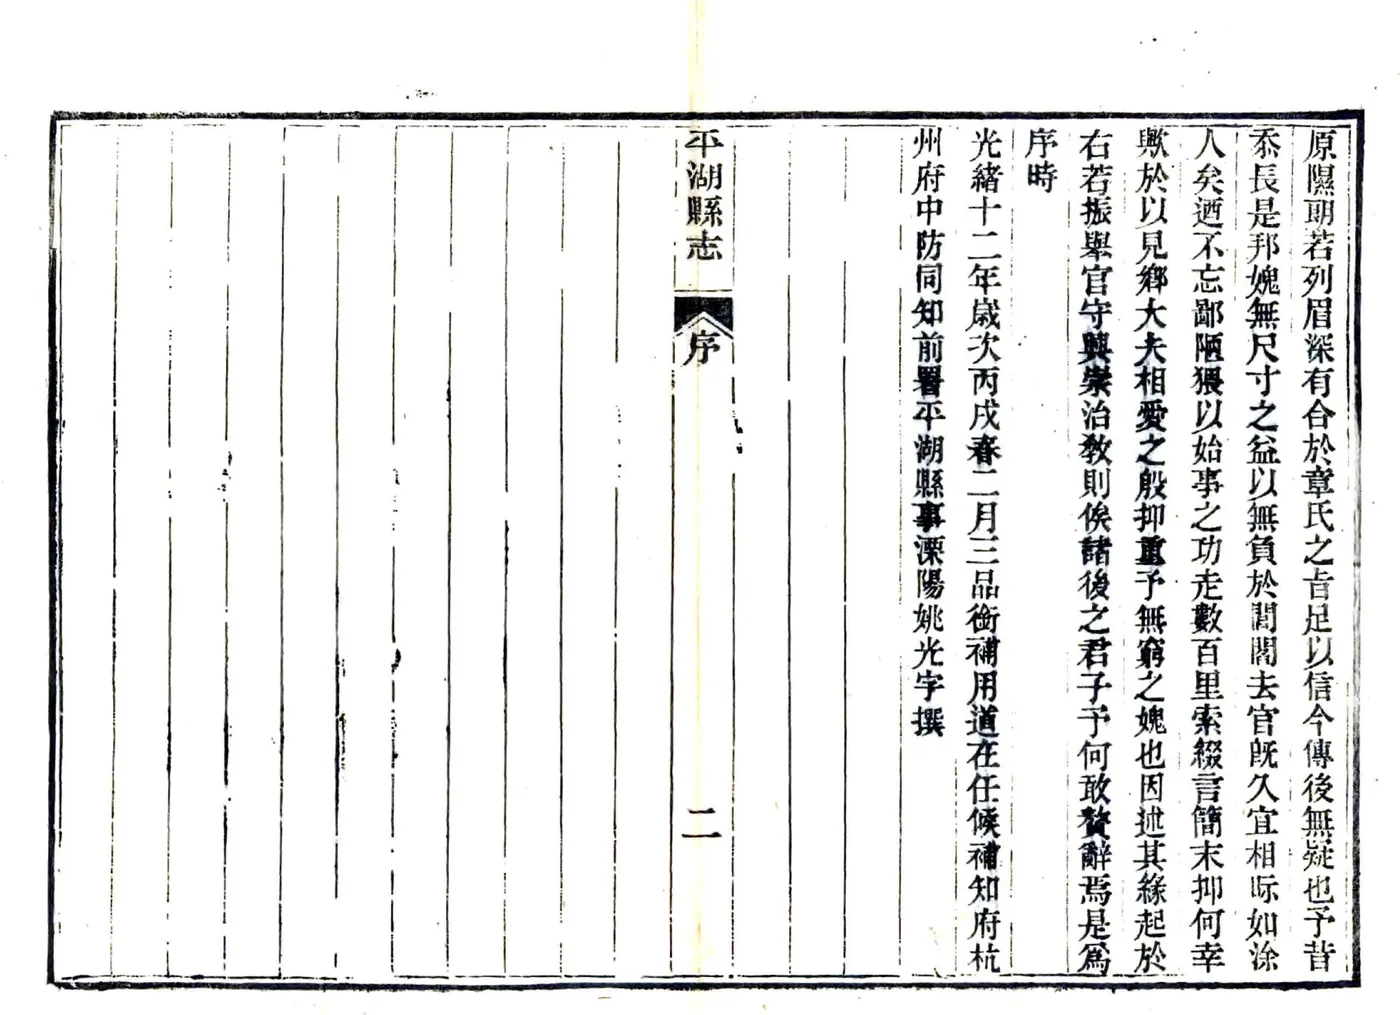 原隰朗若列眉深有合於章氏之旨足以信今傳後無疑也予昔
忝長是邦媿無尺寸之益以無負於閭閻去官旣久宜相眎如涂
人矣迺不忘鄙陋猥以始事之功走數百里索綴言簡末抑何幸
歟於以見鄉大夫相愛之殷抑重予無窮之媿也因述其緣起於
右若振舉官守興崇治敎則俟諸後之君子予何敢贅辭焉是爲
序時
光緒十二年歲次丙戌春二月三品銜補用道在任候補知府杭
州府中防同知前署平湖縣事溧陽姚光宇撰
平湖縣志
序
二